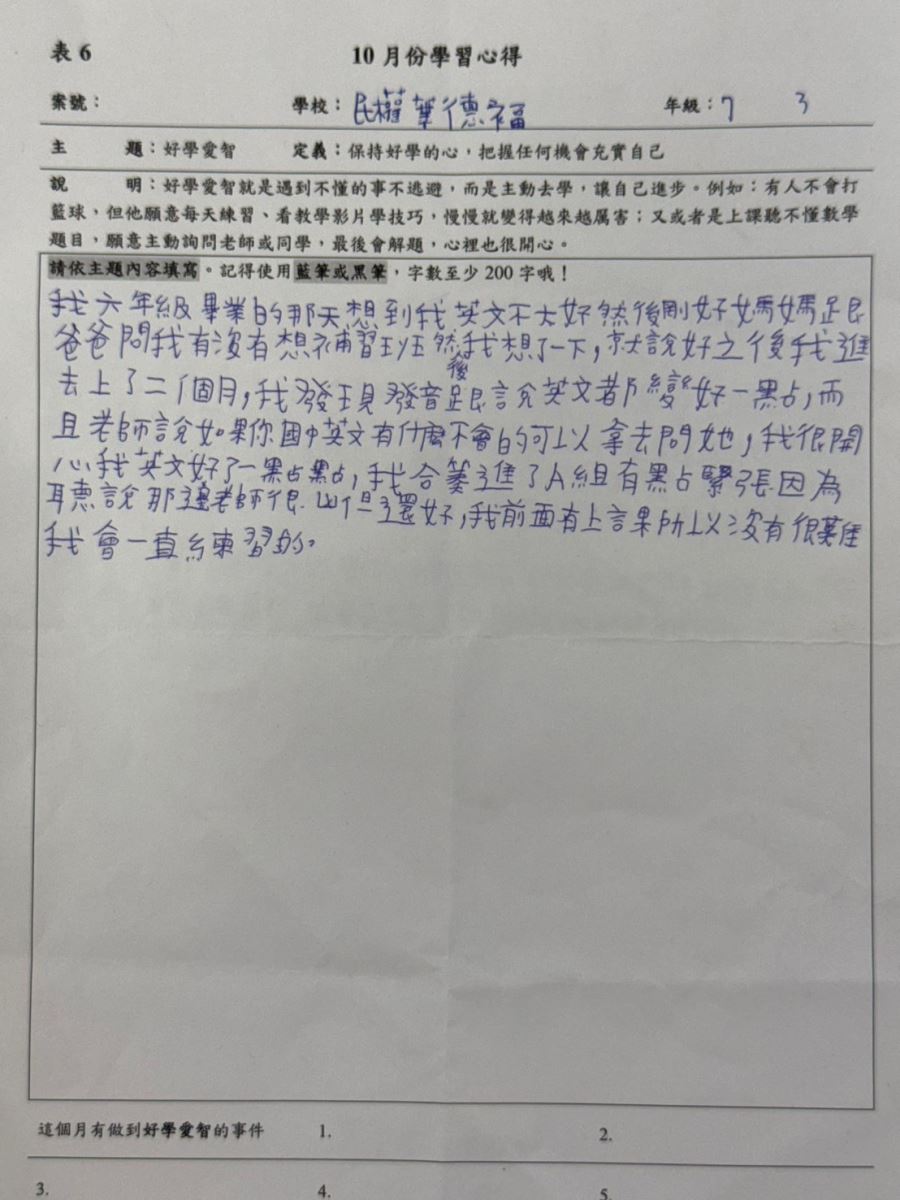 表 6
10 月份學習心得
案號：
學校：民權華德福
年級：7 3
主 題：好學愛智 定義：保持好學的心，把握任何機會充實自己
說 明：好學愛智就是遇到不懂的事不逃避，而是主動去學，讓自己進步。例如：有人不會打
籃球，但他願意每天練習、看教學影片學技巧，慢慢就變得越來越厲害；又或者是上課聽不懂數學
題目，願意主動詢問老師或同學，最後會解題，心裡也很開心。
請依主題內容填寫。記得使用藍筆或黑筆，字數至少 200 字哦！
我六年級畢業的那天想到我英文不太好然後剛好媽媽跟
爸爸問我有沒有想補習班然後我想了一下，就說好之後我進
去上了二個月，我發現發音跟說英文都變好一點，而
且老師說如果你國中英文有什麼不會的可以拿去問她，我很開
心我英文好了一點點，我合進了A組有點緊張因為
聽說那邊老師很凶但還好，我前面有上課所以沒有很難
我會一直練習的。
這個月有做到好學愛智的事件
1.
2.
3.
4.
5.